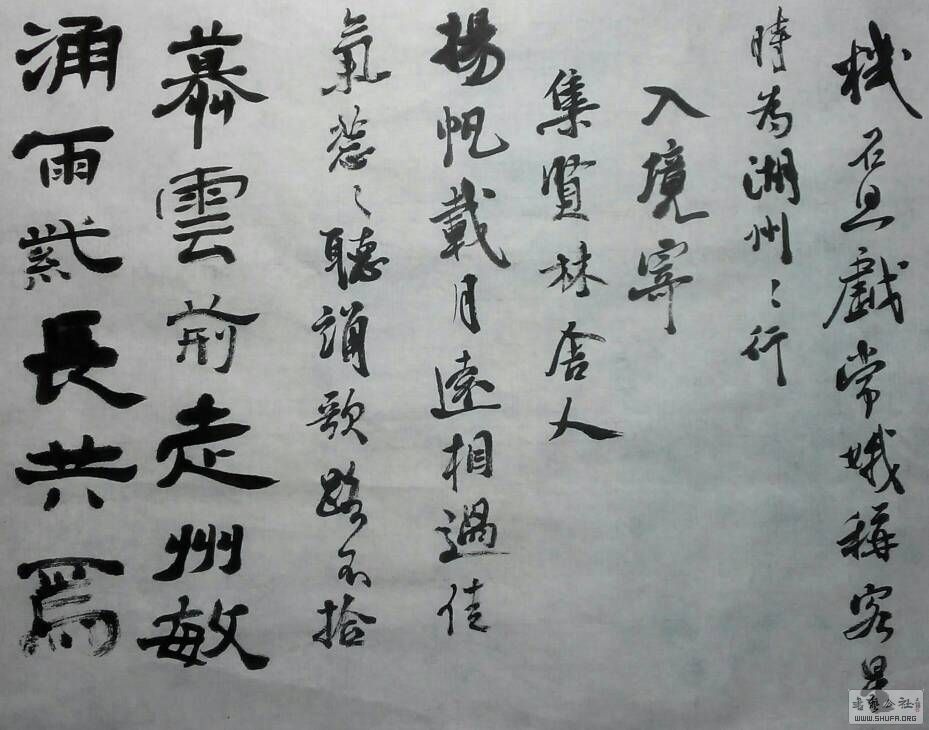 機石且戲常娥稱客星
時為湖州之行
入境寄
集賢林舍人
揚帆載月遠相過佳
氣葱々聽誦歌路不拾
慕雲荊走州敏
涌雨紫長共為
書藝公社
WWW.SHUFA.ORG